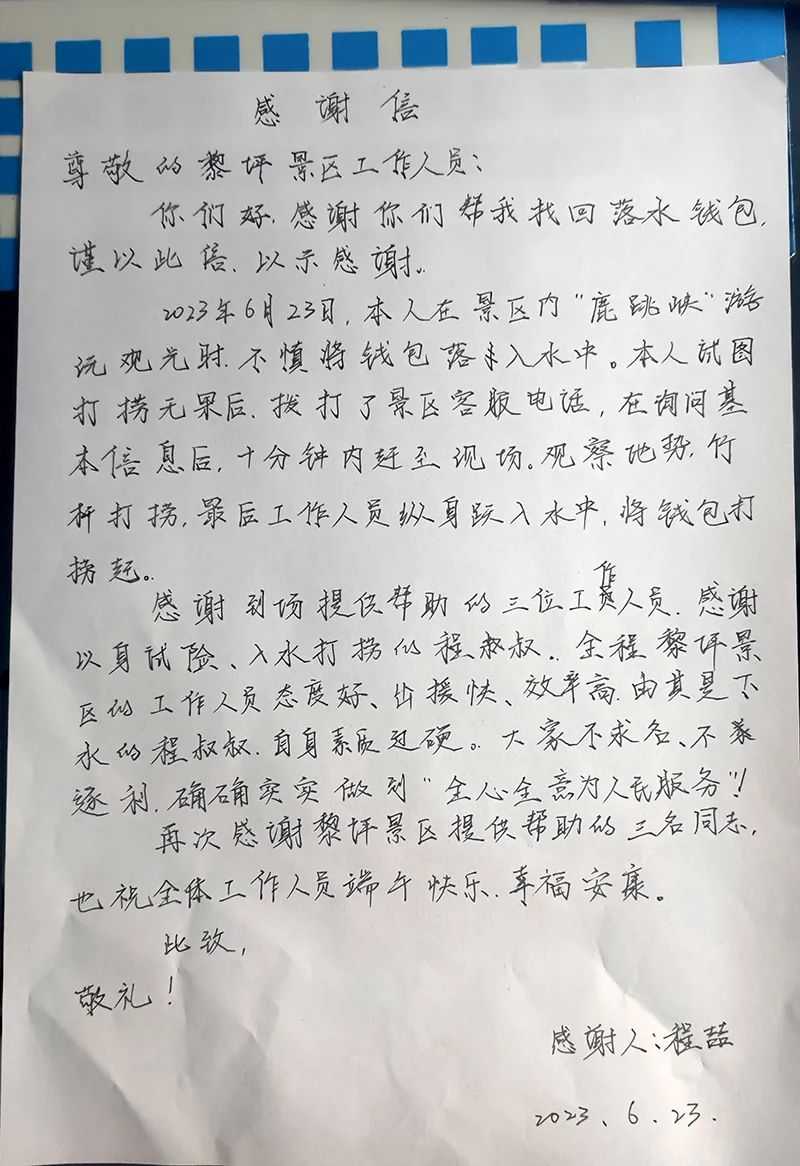 感谢信
尊敬的黎坪景区工作人员:
你们好.感谢你们帮我找回落水钱包,
谨以此信.以示感谢。
2023年6月23日,本人在景区内“鹿跳峡”游
玩观光时.不慎将钱包落入水中。本人试图
打捞无果后.拨打了景区客服电话,在询问基
本信息后,十分钟内赶至现场。观察地势.竹
杆打捞,最后工作人员纵身跃入水中,将钱包打
捞起。
感谢到场提供帮助的三位工作人员.感谢
以身试险、入水打捞的程叔叔.全程黎坪景
区的工作人员态度好、出援快、效率高.由其是下
水的程叔叔.自身素质过硬。大家不求名、不
逐利.确确实实做到“全心全意为人民服务”!
再次感谢黎坪景区提供帮助的三名同志,
也祝全体工作人员端午快乐.幸福安康。
此致,
敬礼!
感谢人:程喆
2023.6.23.